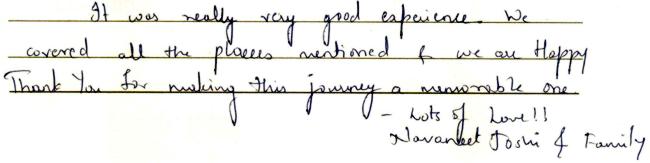 It was really very good experience. We
covered all the places mentioned & we are Happy
Thank You for making this journey a memorable one
- Lots of Love!!
Navaneet Joshi & Family